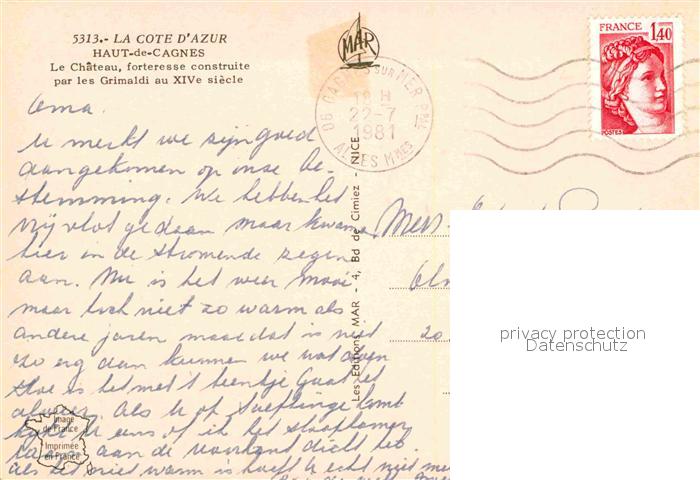 5313.- LA COTE D'AZUR
HAUT-de-CAGNES
Le Château, forteresse construite
par les Grimaldi au XIVe siècle
MAR
FRANCE
1,40
POSTES
06 CAGNES SUR MER PPAL
18 H
22-7
1981
ALPES MMES
Oma.
U merkt we zijn goed
aangekomen op onze be-
stemming. We hebben het
vrij vlot gedaan maar kwamen
hier in de stromende regen
aan. Nu is het weer mooi
maar toch niet zo warm als
andere jaren maar dat is niet
zo erg dan kunnen we wat doen
Hoe is het met 't teentje Gaat het
alweer. Als U op
kijkt U eens of ik het
aan de voorkant dicht heb
als het niet warm is hoeft U echt niet
Mevr.
20
Les Editions MAR - 4, Bd de Cimiez - NICE
Image
de France
Imprimée
en France
privacy protection
Datenschutz